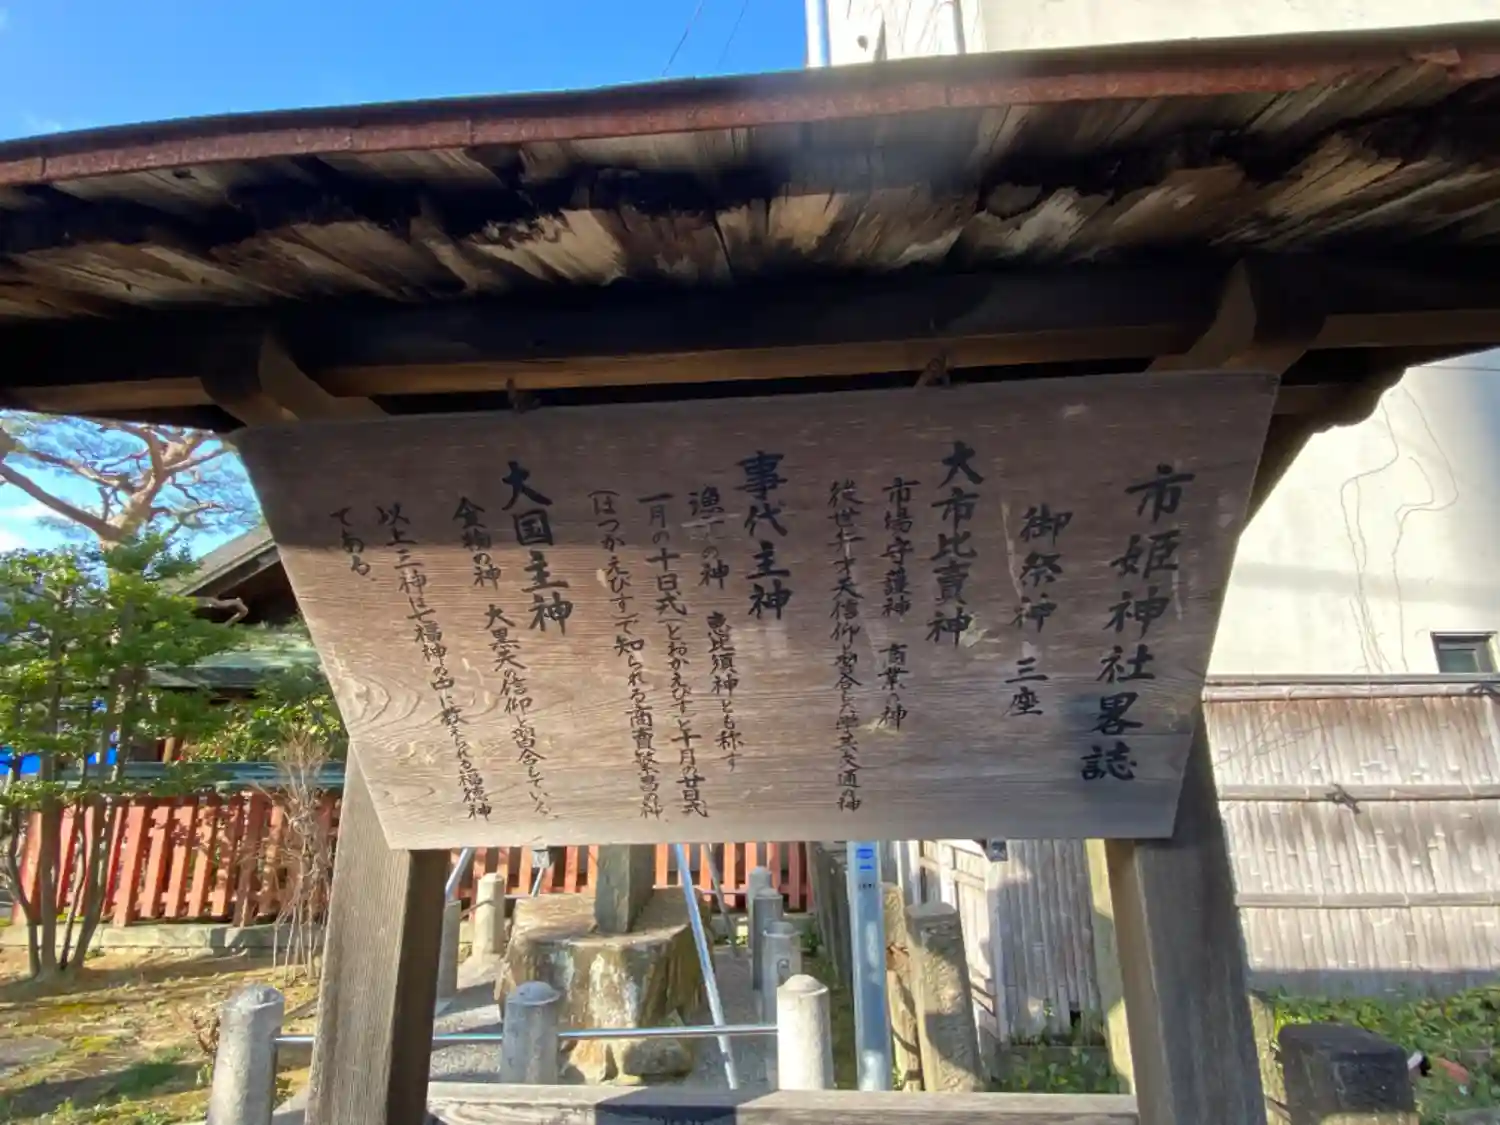 市姫神社畧誌
御祭神 三座
大市比賣神
市場守護神 商業の神
後世弁才天信仰と習合し
事代主神
漁 の神 恵比須神とも称す
一月の十日式(とおかえびす)と十月の廿日式
(はつかえびす)で知られる商賣繁昌の神
大国主神
金物の神 大黒天の信仰と習合している
以上三神は七福神の中に数えられる福徳神
である